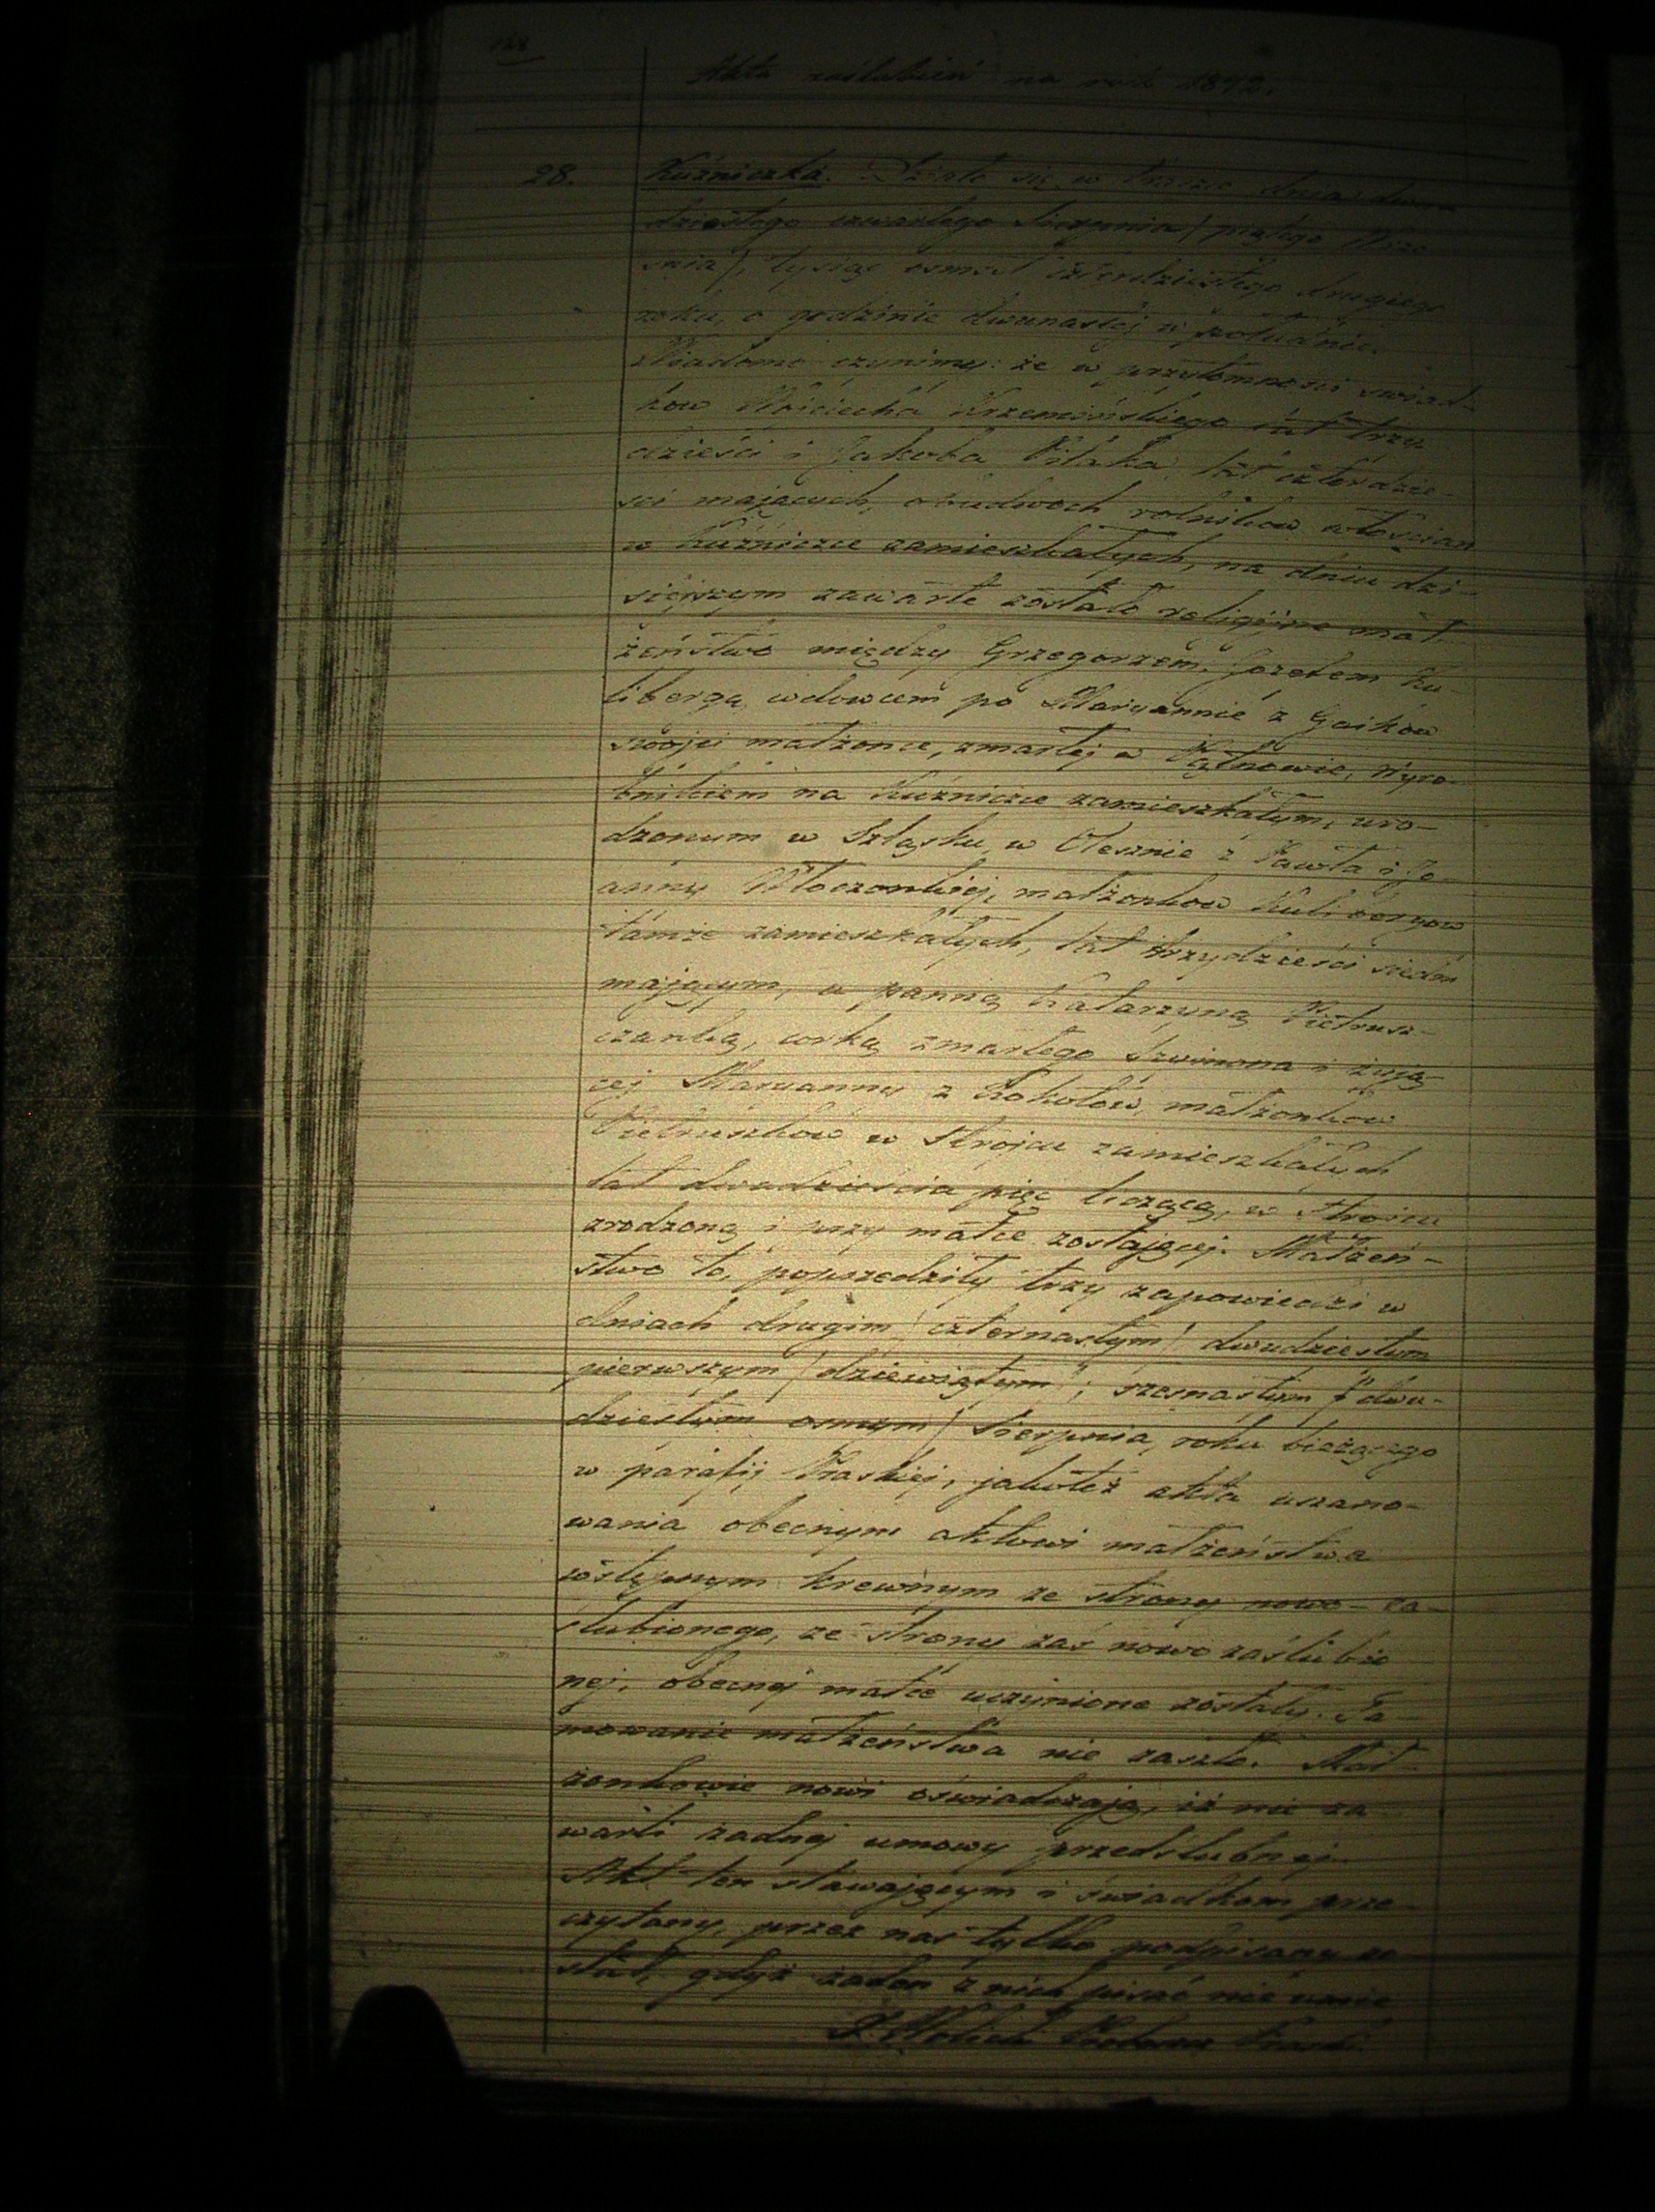 Akta zaślubień na rok 1842.
28. Kuźniczka. Działo się w Prasce dnia dwu-
dziestego czwartego Sierpnia / piątego Wrze
śnia /, tysiąc osmset czterdziestego drugiego
roku, o godzinie dwunastej w południe.
Wiadomo czynimy: że w przytomności świad-
ków Wojciecha Krzemińskiego lat trzy
dzieści i Jakoba Pilaka, lat czterdzie
ści mających, obudwoch rolników włościan
w Kuźniczce zamieszkałych, na dniu dzi-
siejszym zawarte zostało religijne mał
żeństwo między Grzegorzem Jozefem Ku-
libergą, wdowcem po Maryannie z Gaików
swojej małżonce, zmarłej w Wątnowie, Wyro-
bnikiem na Kuźniczce zamieszkałym, uro-
dzonym w Szląsku, w Olesznie z Pawła i Jo-
anny małżonków Kulibergow
tamże zamieszkałych, lat trzydzieści siedm
mającym, a panną Katarzyną Pietrusz-
czanką, corką zmarłego Szymona i żyją
cej Maryanny z małżonków
Pietruszków w Strojcu zamieszkałych
lat dwadzieścia pięć liczącą, w Strojcu
zrodzoną i przy matce zostającej. Małżeń-
stwo to, poprzedziły trzy zapowiedzi w
dniach drugim / czternastym / dwudziestym
pierwszym / dziewiątym /, szesnastym / dwu-
dziestym osmym / Sierpnia, roku bieżącego
w parafij Praskiej, jakoteż akta uszano-
wania obecnym aktowi małżeństwa
wstępnym krewnym ze strony nowo-za-
ślubionego, ze strony zaś nowo zaślubio
nej, obecnej matce uczynione zostały. Ta-
mowanie małżeństwa nie zaszło. Mał-
żonkowie nowi oświadczają, iż nie za
warli żadnej umowy przedślubnej.
Akt ten stawającym i świadkom prze-
czytany, przez nas tylko podpisany zo
stał, gdyż żaden z nich pisać nie umie